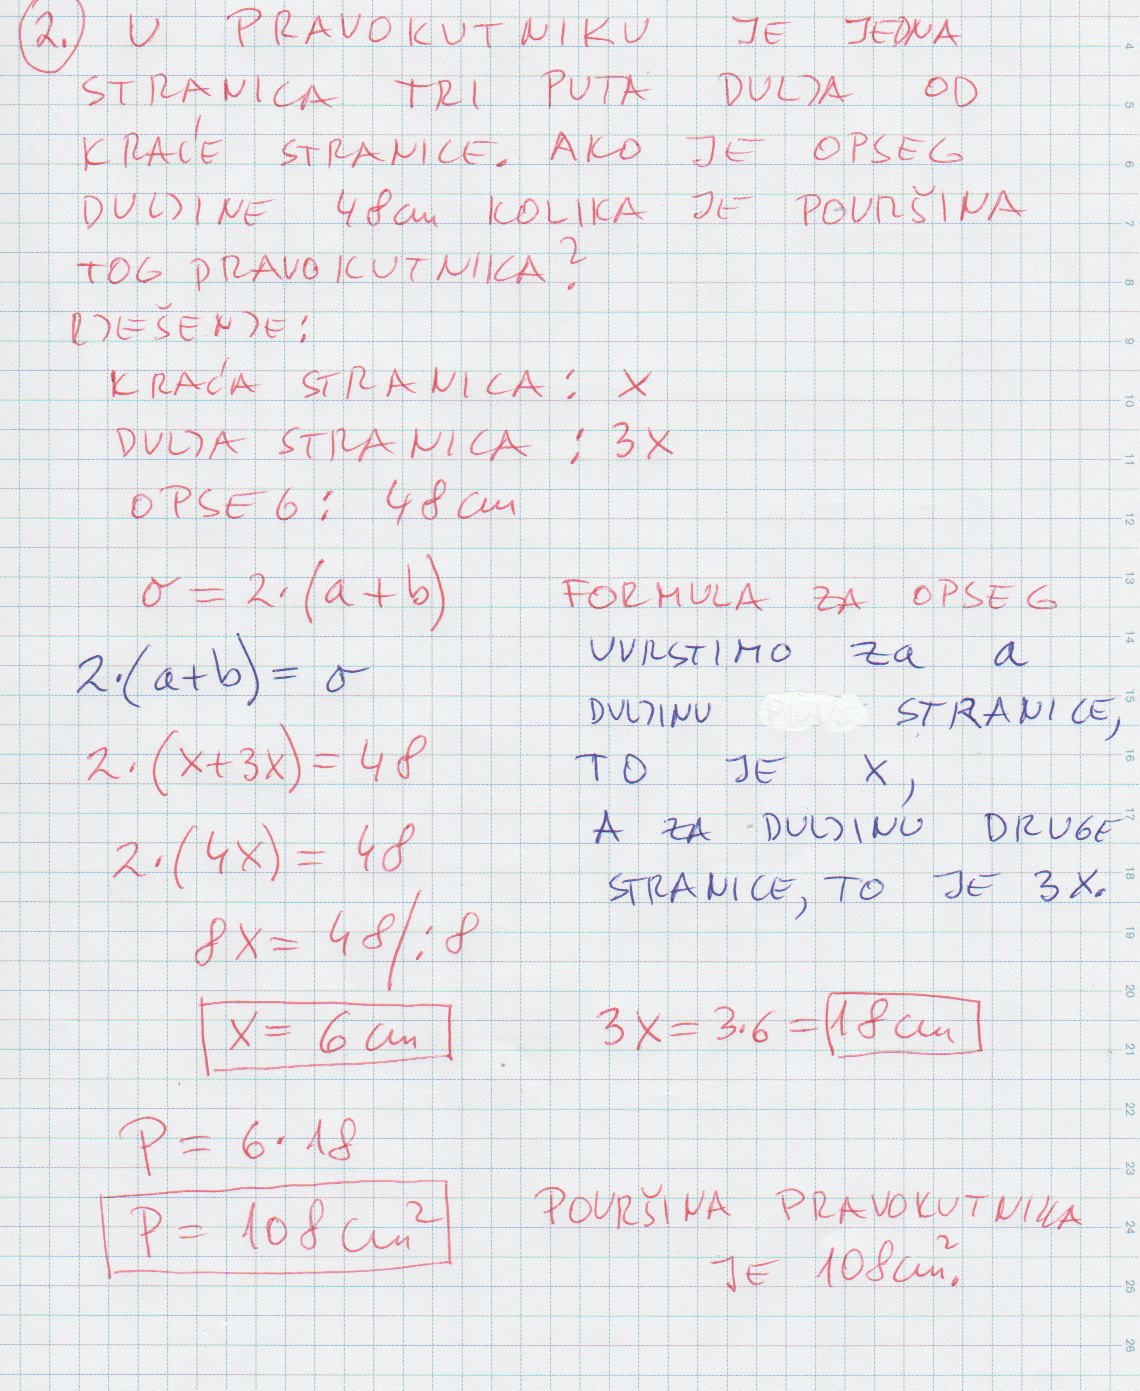 2. U PRAVOKUTNIKU JE JEDNA
STRANICA TRI PUTA DULJA OD
KRAĆE STRANICE. AKO JE OPSEG
DULJINE 48cm KOLIKA JE POVRŠINA
TOG PRAVOKUTNIKA?
RJEŠENJE:
KRAĆA STRANICA: X
DULJA STRANICA: 3X
OPSEG: 48cm
σ = 2·(a+b) FORMULA ZA OPSEG
2·(a+b) = σ UVRSTIMO za a
DULJINU STRANICE,
2·(x+3x) = 48 TO JE X,
2·(4x) = 48 A ZA DULJINU DRUGE
STRANICE, TO JE 3X.
8X = 48/:8
X = 6 cm 3X = 3·6 = 18 cm
P = 6·18
P = 108 cm² POVRŠINA PRAVOKUTNIKA
JE 108cm².
4
5
6
7
8
9
10
11
12
13
14
15
16
17
18
19
20
21
22
23
24
25
26